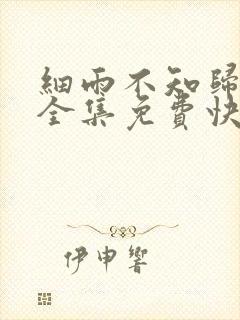 細雨不知歸
全集免費快
伊申響